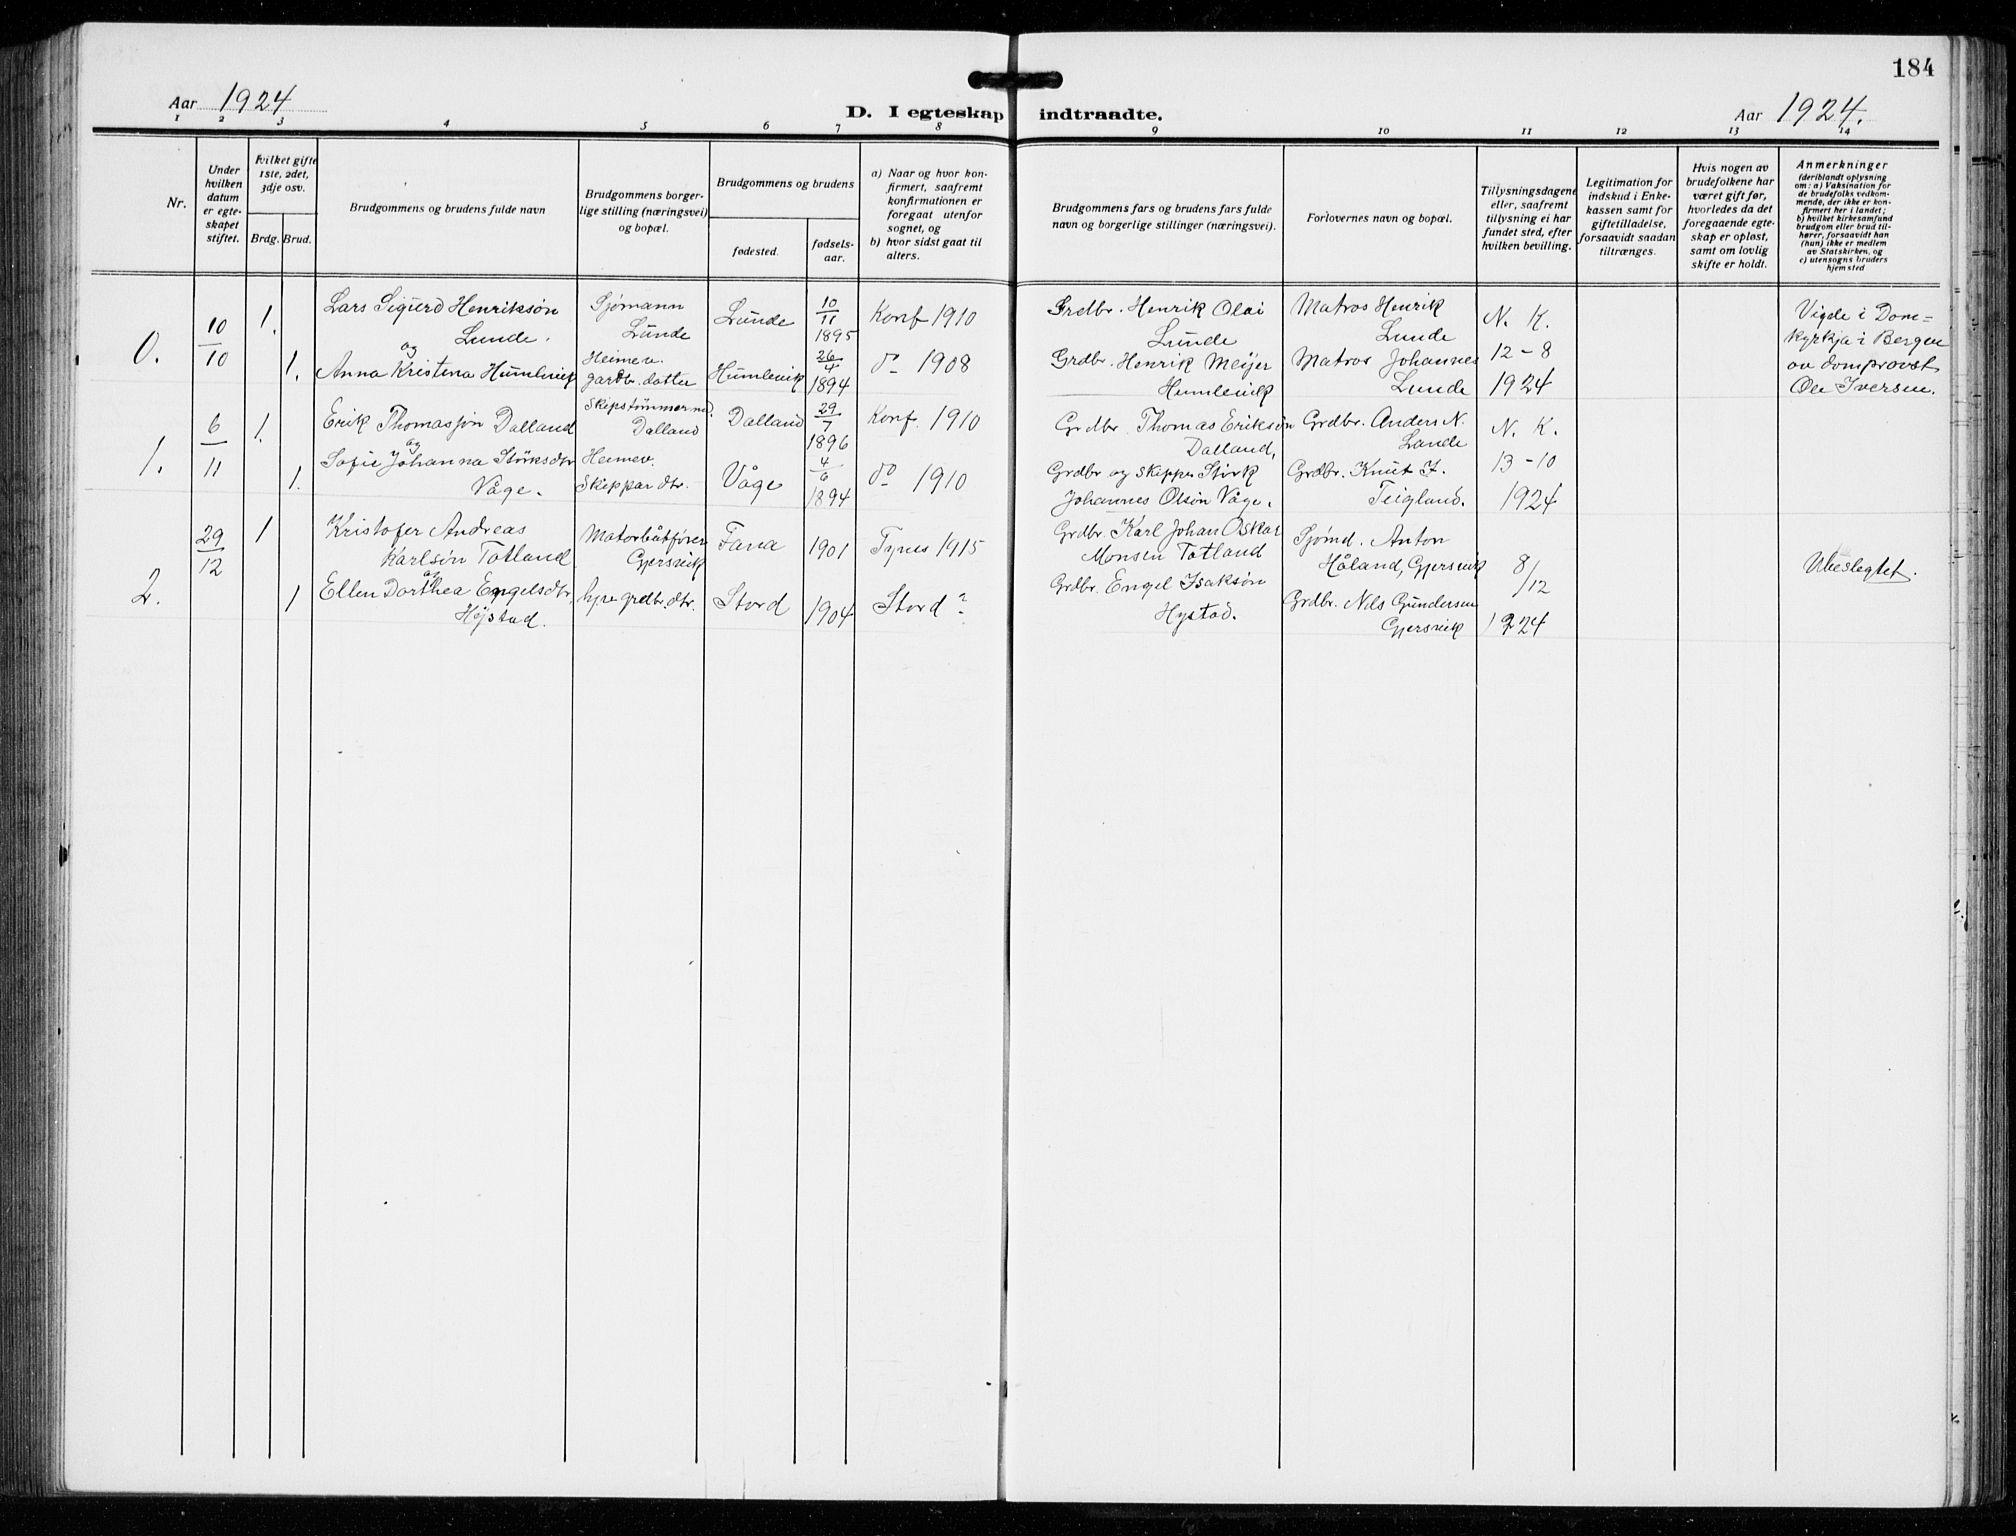 184
Aar 1924
D. I egteskap indtraadte.
Aar 1924.
1 2 3 4 5 6 7 8 9 10 11 12 13 14
Nr.
Under hvilken datum er egteskapet stiftet.
Hvilket gifte 1ste, 2det, 3dje osv.
Brdg. Brud.
Brudgommens og brudens fulde navn
Brudgommens borgerlige stilling (næringsvei) og bopæl.
Brudgommens og brudens
fødested.
fødselsaar.
a) Naar og hvor konfirmert, saafremt konfirmationen er foregaat utenfor sognet, og
b) hvor sidst gaat til alters.
Brudgommens fars og brudens fars fulde navn og borgerlige stillinger (næringsvei).
Forlovernes navn og bopæl.
Tillysningsdagene eller, saafremt tillysning ei har fundet sted, efter hvilken bevilling.
Legitimation for indskud i Enkekassen samt for giftetilladelse, forsaavidt saadan tiltrænges.
Hvis nogen av brudefolkene har været gift før, hvorledes da det foregaaende egteskap er opløst, samt om lovlig skifte er holdt.
Anmerkninger
(deriblandt oplysning om: a) Vaksination for de brudefolks vedkommende, der ikke er konfirmert her i landet; b) hvilket kirkesamfund brudgom eller brud tilhører, forsaavidt han (hun) ikke er medlem av Statskirken, og c) utensogns bruders hjemsted
0.
10/10
1.
Lars Sigurd Henriksøn
Lunde.
Sjømann
Lunde
Lunde
10/11
1895
Konf 1910
Grdbr. Henrik Olai
Lunde
Matros Henrik
Lunde
N. K.
12-8
1924
Vigde i Dom=
kyrkja i Bergen
av domprovst
Ole Iversen.
og
1.
Anna Kristina Humlevik
Heimev.
gardbr. dotter
Humlevik
26/4
1894
do 1908
Grdbr. Henrik Meijer
Humlevik
Matros Johannes
Lunde
1.
6/11
1.
Erik Thomassøn Dalland
Skipstimmermd.
Dalland
Dalland
29/7
1896
Konf 1910
Grdbr. Thomas Eriksøn
Dalland,
Grdbr. Anders N.
Lande
N. K.
13-10
1924
og
1.
Sofie Johanna Størksdtr
Våge.
Heimev.
Skippar dtr.
Våge
4/6
1894
do 1910
Grdbr og Skipper Störk
Johannes Olsøn Våge.
Grdbr. Knut I.
Teigland.
2.
29/12
1
Kristofer Andreas
Karlsøn Totland
Motorbåtfører
Gjersvik
Fana
1901
Tynes 1915
Grdbr. Karl Johan Oskar
Monsen Totland
Sjømd. Anton
Håland, Gjersvik
8/12
1924
Ubeslegtet.
og
1
Ellen Dorthea Engelsdtr,
Høystad.
hjre grdbr. dtr.
Stord
1904
Stord ?
Grdbr. Engel Isaksøn
Hystad.
Grdbr. Nils Gundersen
Gjersvik